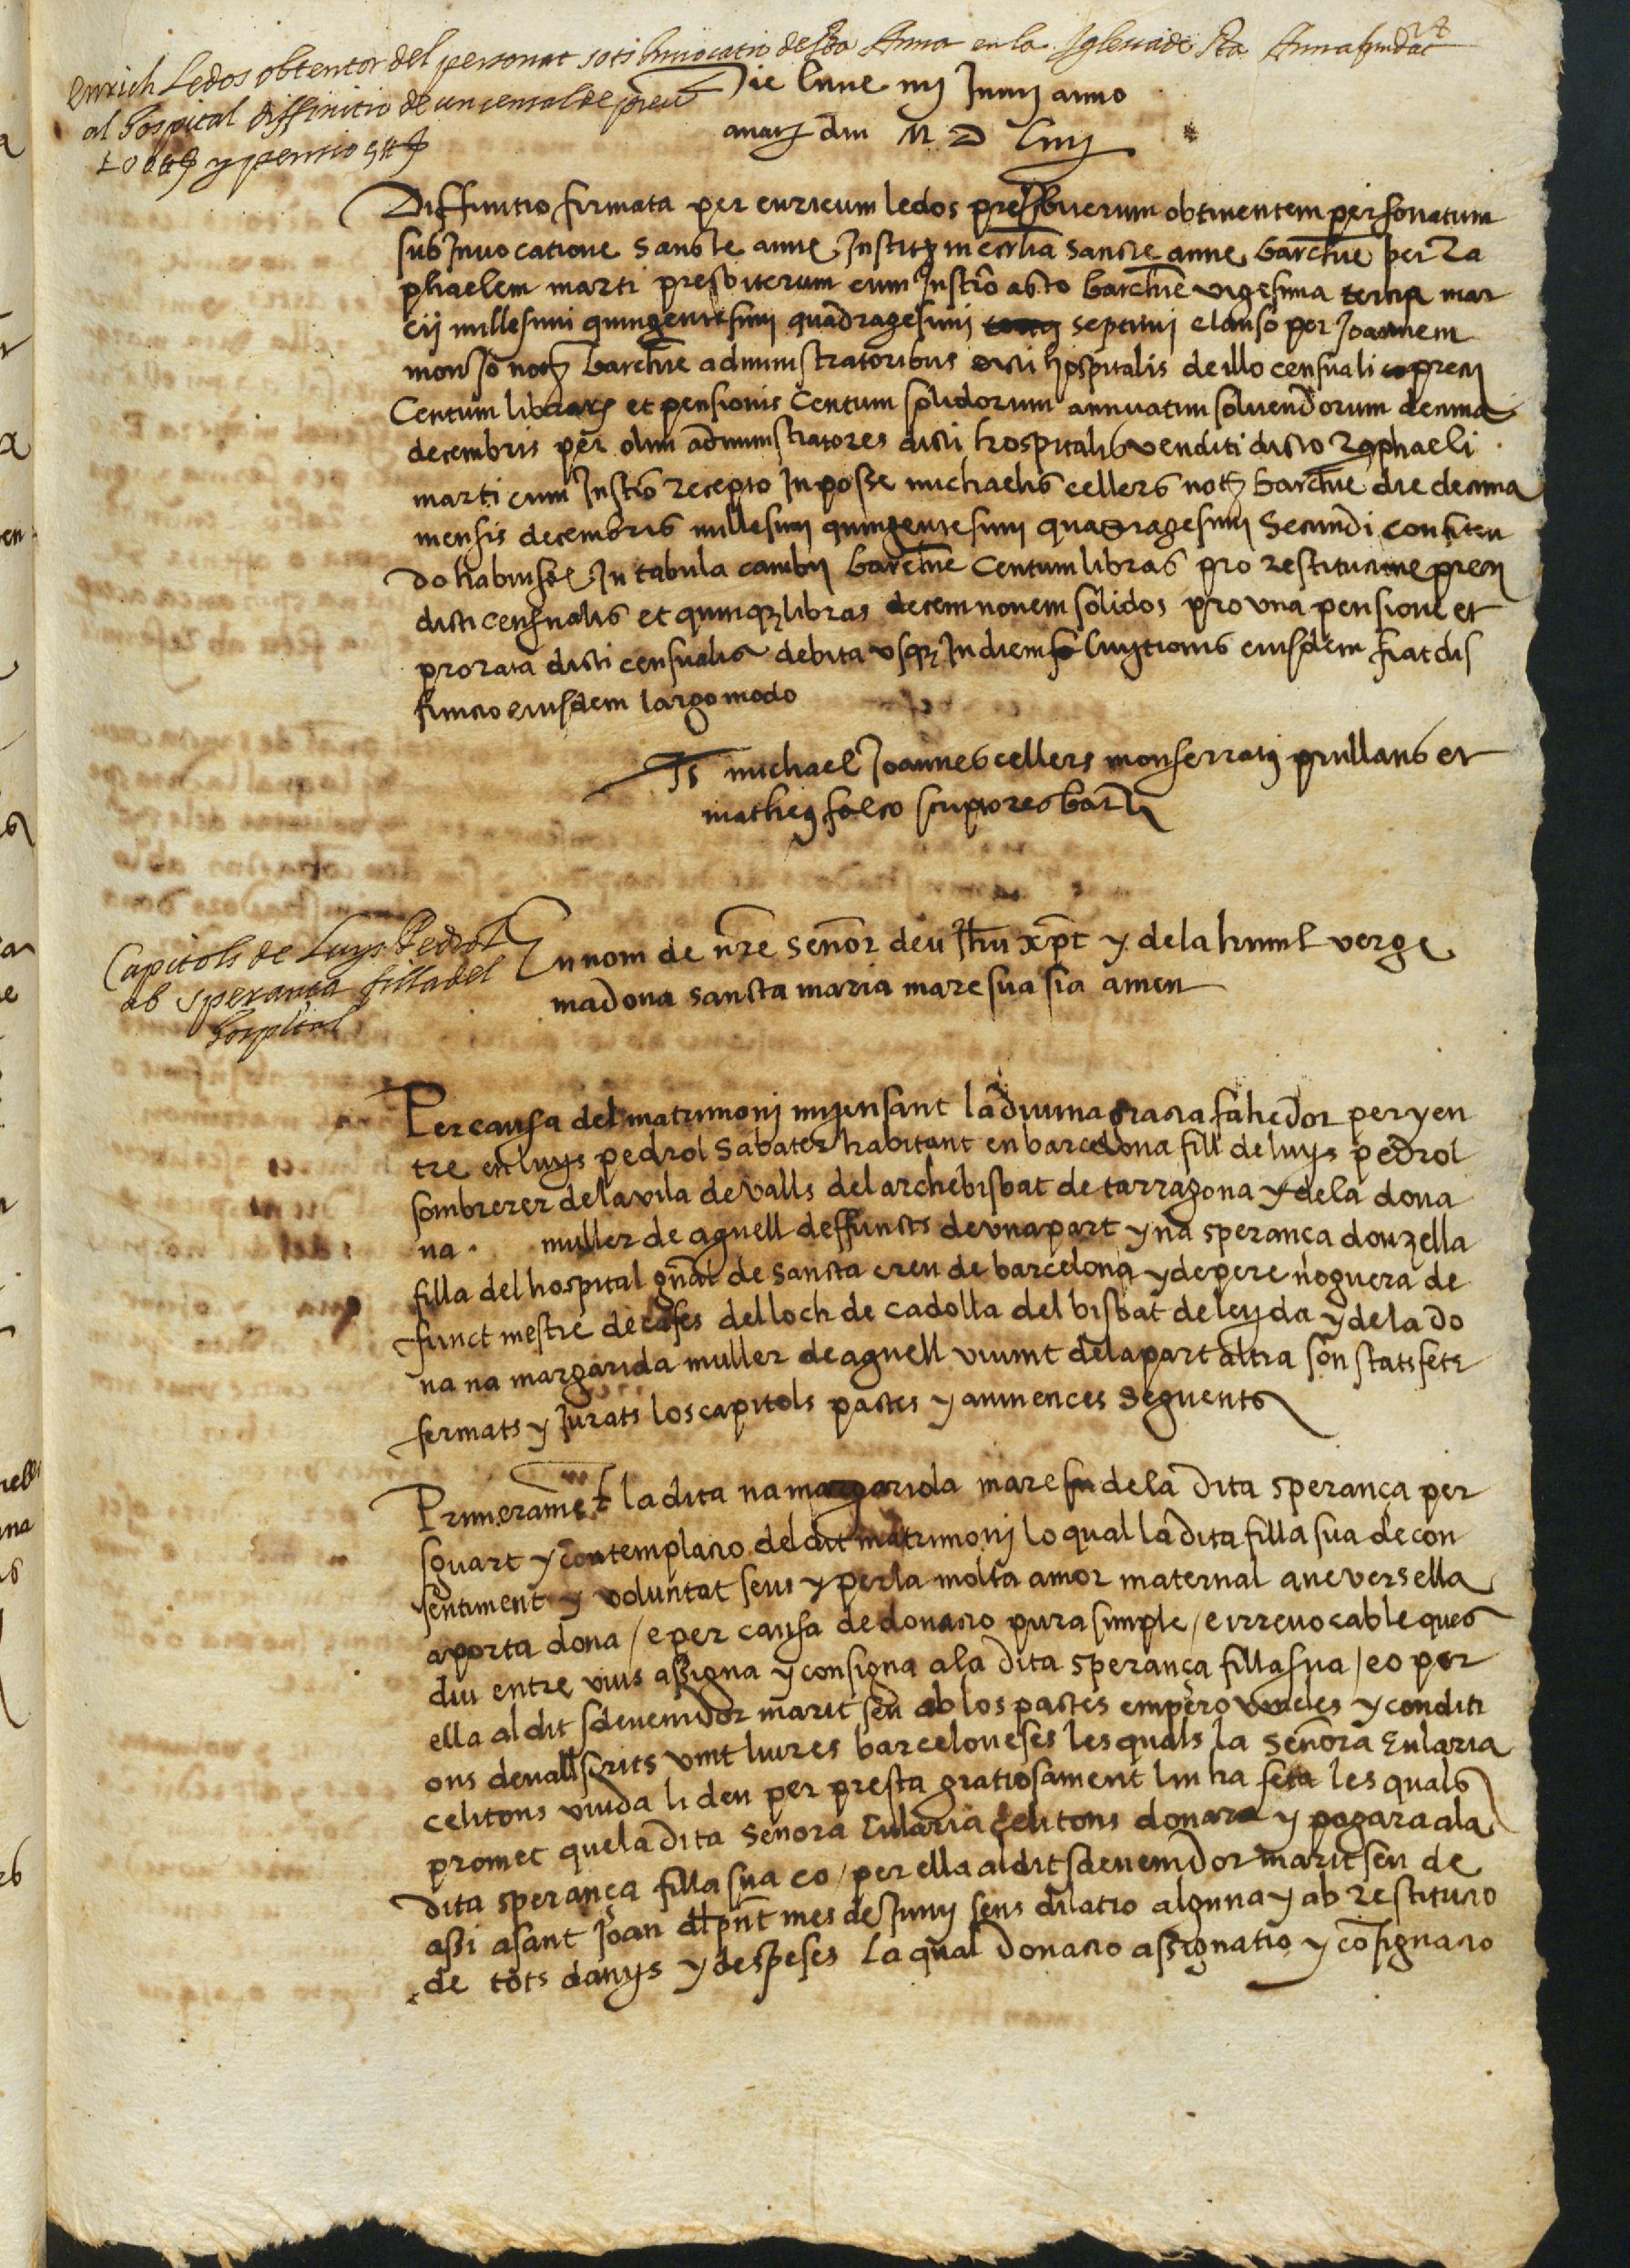 Enrich Ledos obtentor del personat sots invocatio de Sta Anna en la Iglesia de Sta Anna fa
al Hospital diffinitio de un censal de preu
100 ll y pensio 5 ll
Die lune iiij Junij anno
a nati dni M D Liiij
Diffinitio firmata per enricum ledos presbiterum obtinentem personatum
sub Invocatione Sancte anne Instituti in ecclia Sancte anne barchne per Ra
phaelem marti presbiterum cum Instro acto barchne vigesima tercia mar
cij millesimi quingentesimi quadragesimi septimi clauso per Joannem
monso noty barchne administratoribus dicti hospitalis de illo censuali precij
Centum librarum et pensionis Centum solidorum annuatim solvendorum decima
decembris per olim administratores dicti hospitalis venditi dicto Raphaeli
marti cum Instro recepto In posse michaelis cellers noty barchne die decima
mensis decembris millesimi quingentesimi quadragesimi Secundi confiten
do habuisse In tabula cambij barchne Centum libras pro restitucione precij
dicti censualis et quinq libras decem novem solidos pro una pensione et
prorata dicti censualis debita usq In diem luytionis eiusdem fiat dif
finicio eiusdem largo modo
Ts michael Joannes cellers monserratus prullans et
matheus falco scriptores barne
Capitols de Luys Pedrol
ab sperança filla del
hospital
En nom de nre Senor deu Jhu xpt y de la humil verge
madona sancta maria mare sua sia amen
Per causa del matrimonj mijensant la divina gracia fahedor per y en
tre en luys pedrol Sabater habitant en barcelona fill de luys pedrol
sombrerer de la vila de valls del archebisbat de tarragona y de la dona
na . muller de aquell deffuncts de una part y na sperança donzella
filla del hospital gnal de sancta creu de barcelona y de pere noguera de
funct mestre de cases del loch de cadolla del bisbat de leyda y de la do
na na margarida muller de aquell vivint de la part altra son stats fets
fermats y Jurats los capitols pactes y avinences Seguents
Primeramet la dita na margarida mare de la dita sperança per
sguart y contemplacio del dit matrimonj lo qual la dita filla sua de con
sentiment y voluntat seus y per la molta amor maternal que vers ella
aporta dona / e per causa de donacio pura simple / e irrevocable ques
diu entre vius assigna y consigna a la dita sperança filla sua / e o per
ella al dit sdevenidor marit seu ab los pactes empero vincles y conditi
ons devall scrits vint liures barceloneses les quals la Senora Eularia
celitons viuda li deu per presta gratiosament lin ha feta les quals
promet que la dita Senora Eularia celitons donara y pagara a la
dita sperança filla sua e o / per ella al dit sdevenidor marit seu de
assi a sant Joan del pnt mes de Juny sens dilatio alguna y ab restitucio
de tots danys y despeses La qual donacio assignatio y cosignacio